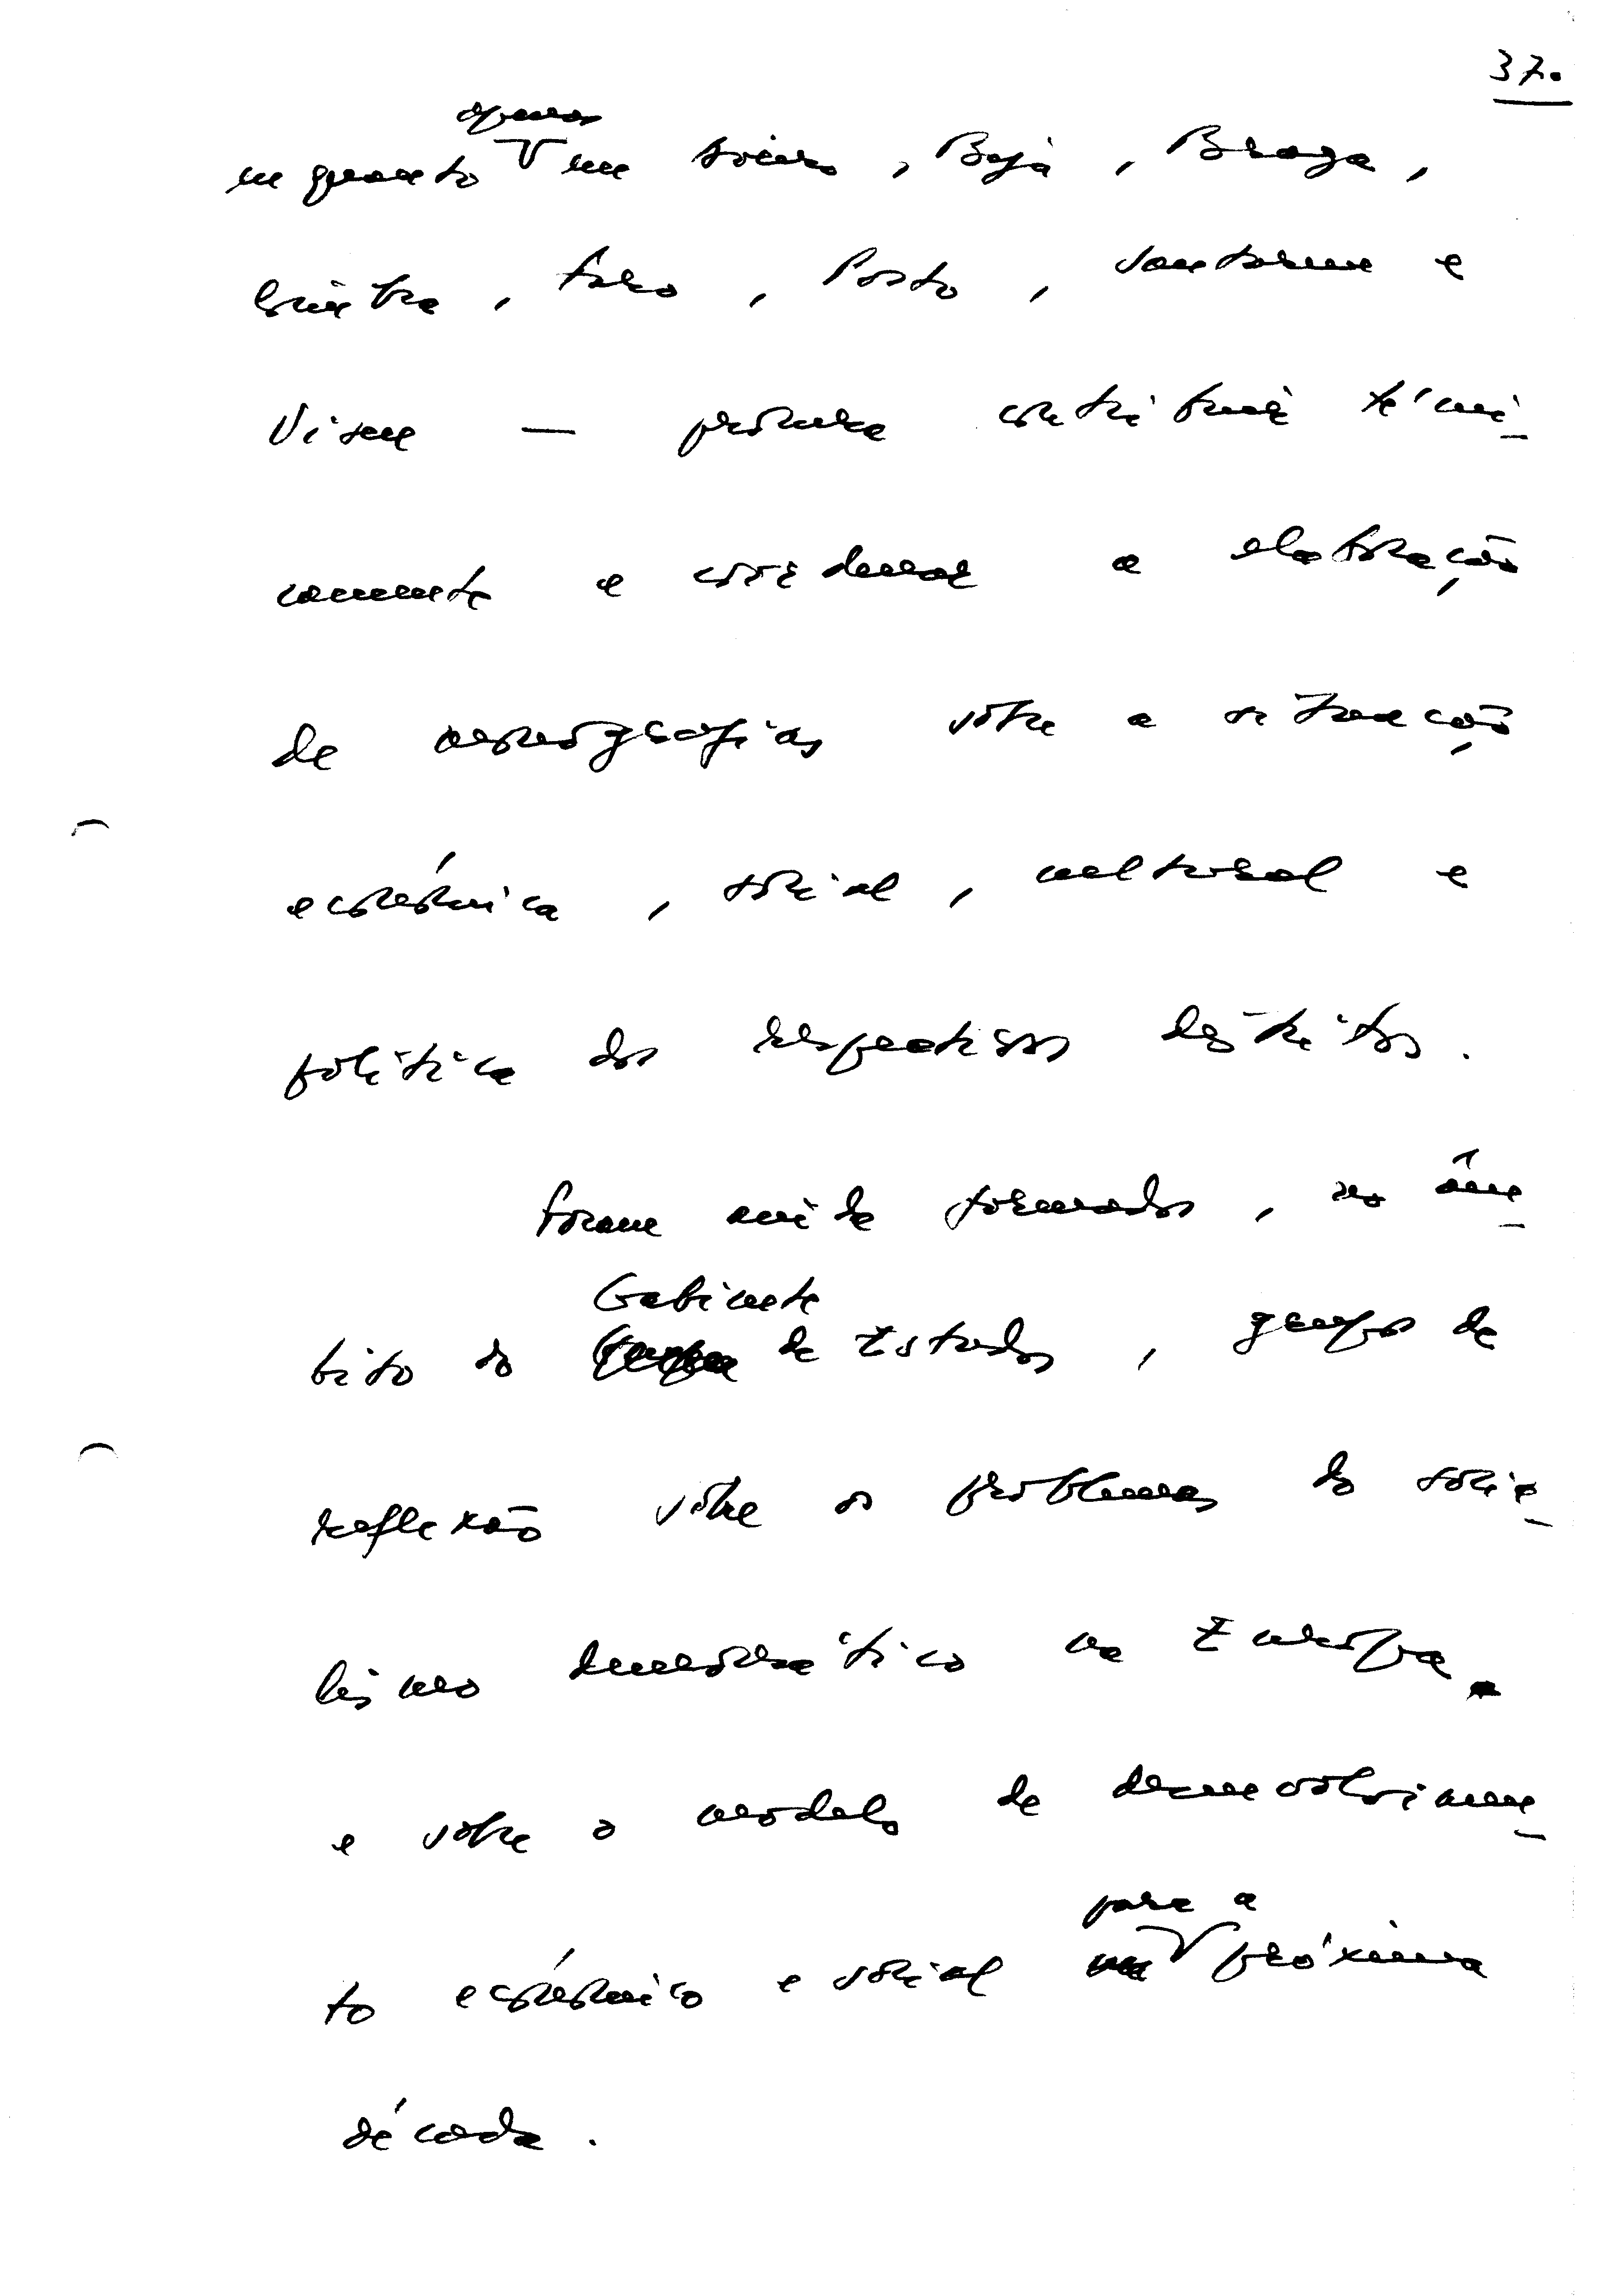 37.
apenas
enquanto em Aveiro, Beja, Braga,
Coimbra, Faro, Porto, Santarém e
Viseu — procura contribuir tecni-
camente e coordenar a elaboração
de monografias sobre a situação
económica, social, cultural e
política dos respectivos distritos.
Foram ainda formados, no âm-
Gabinete
bito do de Estudos, grupos de
reflexão sobre os problemas do socia-
lismo democrático na Europa
e sobre o modelo de desenvolvimen-
para a
to económico e social próxima
década.